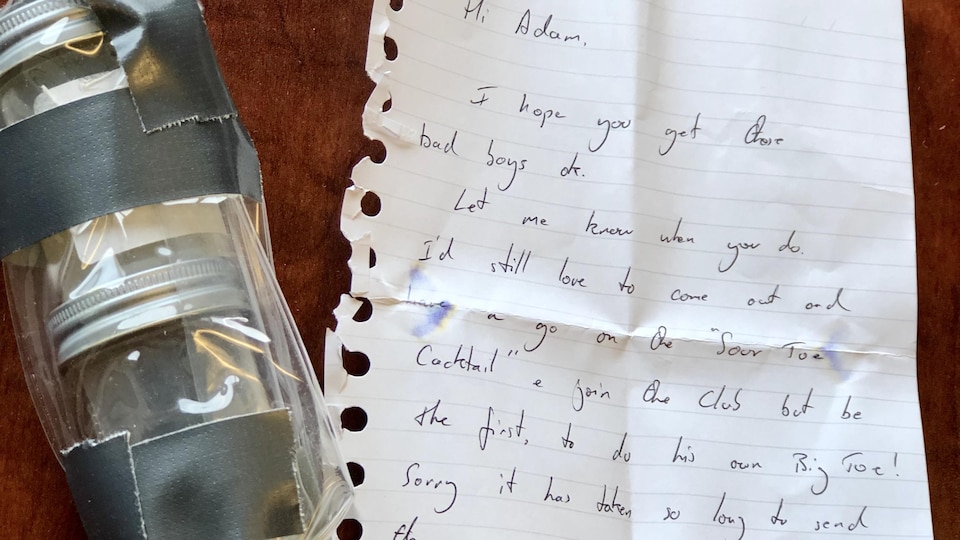 Hi Adam,
I hope you get these
bad boys ok.
Let me know when you do.
I'd still love to come out and
have a go on the "Sour Toe
Cocktail" & join the club but be
the first, to do his own Big Toe!
Sorry it has taken so long to send